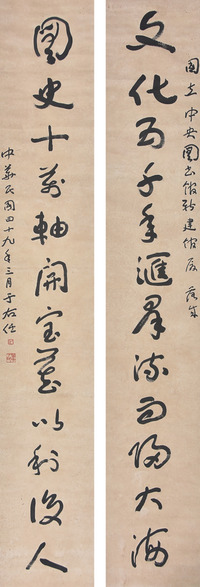 國立中央圖書館新建館廈落成
文化五千年滙羣流而歸大海
圖史十萬軸開寶藏以利後人
中華民國四十九年三月于右任